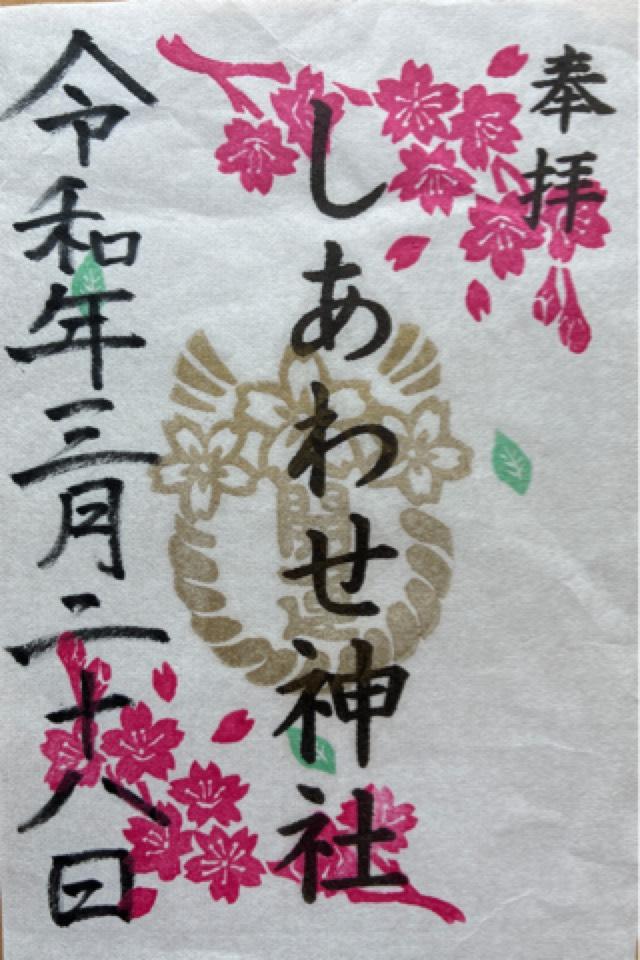 奉拝
しあわせ神社
令和年三月二十八日